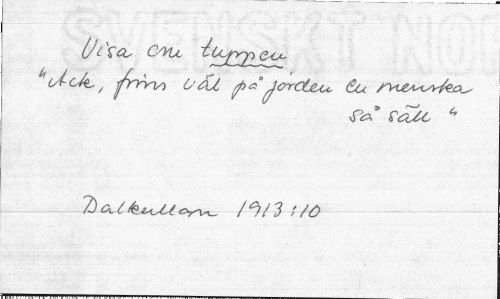 Visa om tuppen
"Ack, finns väl på jorden en menska
så säll"
Dalkullan 1913:10